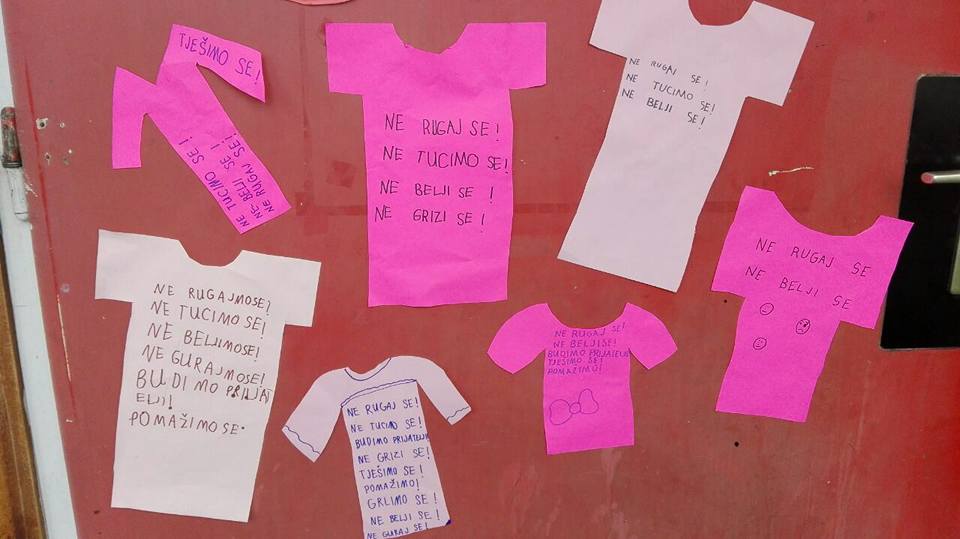 TJEŠIMO SE!
NE TUCIMO SE!
NE BELJI SE!
NE RUGAJ SE!
NE RUGAJ SE!
NE TUCIMO SE!
NE BELJI SE!
NE GRIZI SE!
NE RUGAJ SE!
NE TUCIMO SE!
NE BELJI SE!
NE RUGAJ SE
NE BELJI SE
NE RUGAJMOSE!
NE TUCIMO SE!
NE BELJIMOSE!
NE GURAJMOSE!
BUDIMO PRIJAT
ELJI!
POMAŽIMO SE.
NE RUGAJ SE!
NE TUCIMO SE!
BUDIMO PRIJATELJI
NE GRIZI SE!
TJEŠIMO SE!
POMAŽIMO!
GRLIMO SE!
NE BELJI SE!
NE GURAJ SE!
NE RUGAJ SE!
NE BELJISE!
BUDIMO PRIJATELJI
TJEŠIMO SE!
POMAŽIMO!